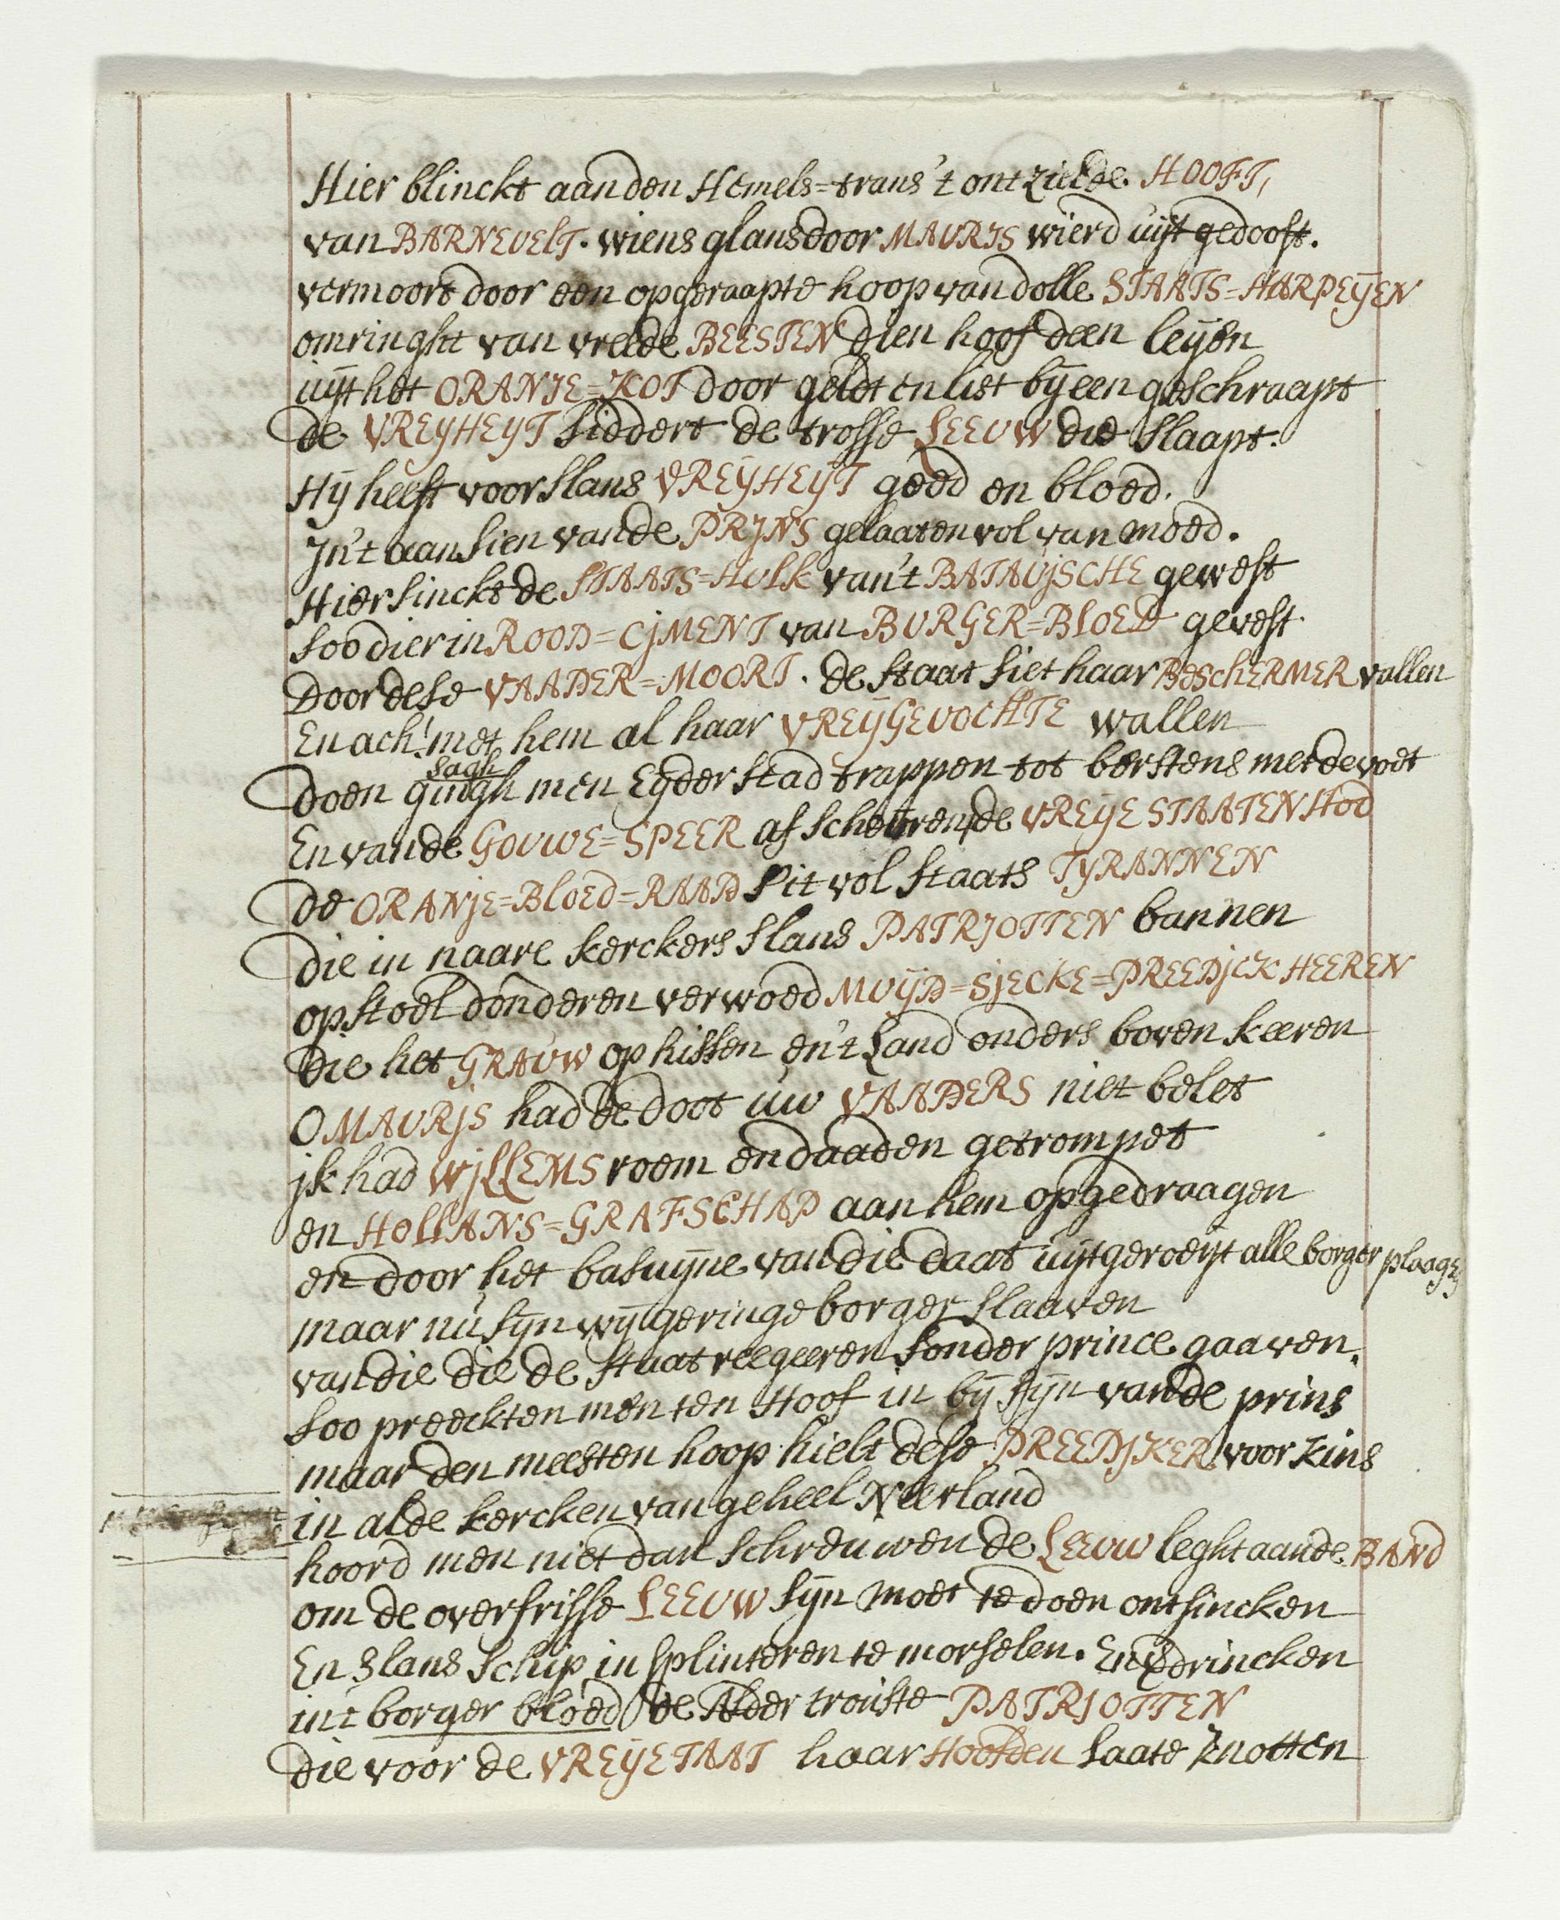 Hier blinckt aan den Hemels=trans 't ontzielde HOOFT,
van BARNEVELT. wiens glans door MAURIS wierd uijt gedooft.
vermoort door een opgeraapte hoop van dolle STAATS=HARPEIJEN
omringht van vreede BEESTEN dien hoof deen leijen
uijt het ORANJE=KOT door geldt en list bij een geschraapt
de VREIJHEIJT siddert de trosse LEEUW die slaapt.
Hij heeft voor slans VREIJHEIJT goed en bloed.
In't aansien vande PRINS gelaaten vol van moed.
Hier sinckt de STAATS=HULK van't BATAVISCHE gewest
soo dier in ROOD=CIMENT van BURGER=BLOED gevest
Door dese VAADER=MOORT. de staat siet haar BESCHERMER vallen
En ach! met hem al haar VREIJGEVOCHTE wallen
sagh
doen gingh men Eijder stad trappen tot berstens met de voet
En vande GOUWE=SPEER afscheuren, de VREIJE STAATEN HOD
de ORANJE=BLOED=RAAD sit vol staats TYRANNEN
die in naare kerckers slans PATRIOTTEN bannen
op stoel donderen verwoed MUIJD=SIECKE=PREEDICK HEEREN
die het GRAUW op hissen en't Land onders boven keeren
O MAURIS had de doot uw VAADERS niet belet
ik had WILLEMS roem en daaden getrompet
en HOLLANS=GRAFSCHAP aan hem opgedraagen
en door het basuijne van die daat uijtgeroeijt alle borger plaagen
maar nu sijn wij geringe borger slaaven
van die die de staat reegeeren sonder prince gaaven.
soo preeckten men ten Hoof in bij sijn vande prins
maar den meesten hoop hielt dese PREEDIKER voor kins
in alde kercken van geheel Neerland
hoord men niet dan schreuwen de LEEUW leght aande BAND
om de overfrisse LEEUW sijn moet te doen ontsincken
En slans schip in splinteren te morselen. En verdrincken
in't borger bloed de Alder trouste PATRIOTTEN
die voor de VREIJE TAAT haar HOOFDEN laate knotten